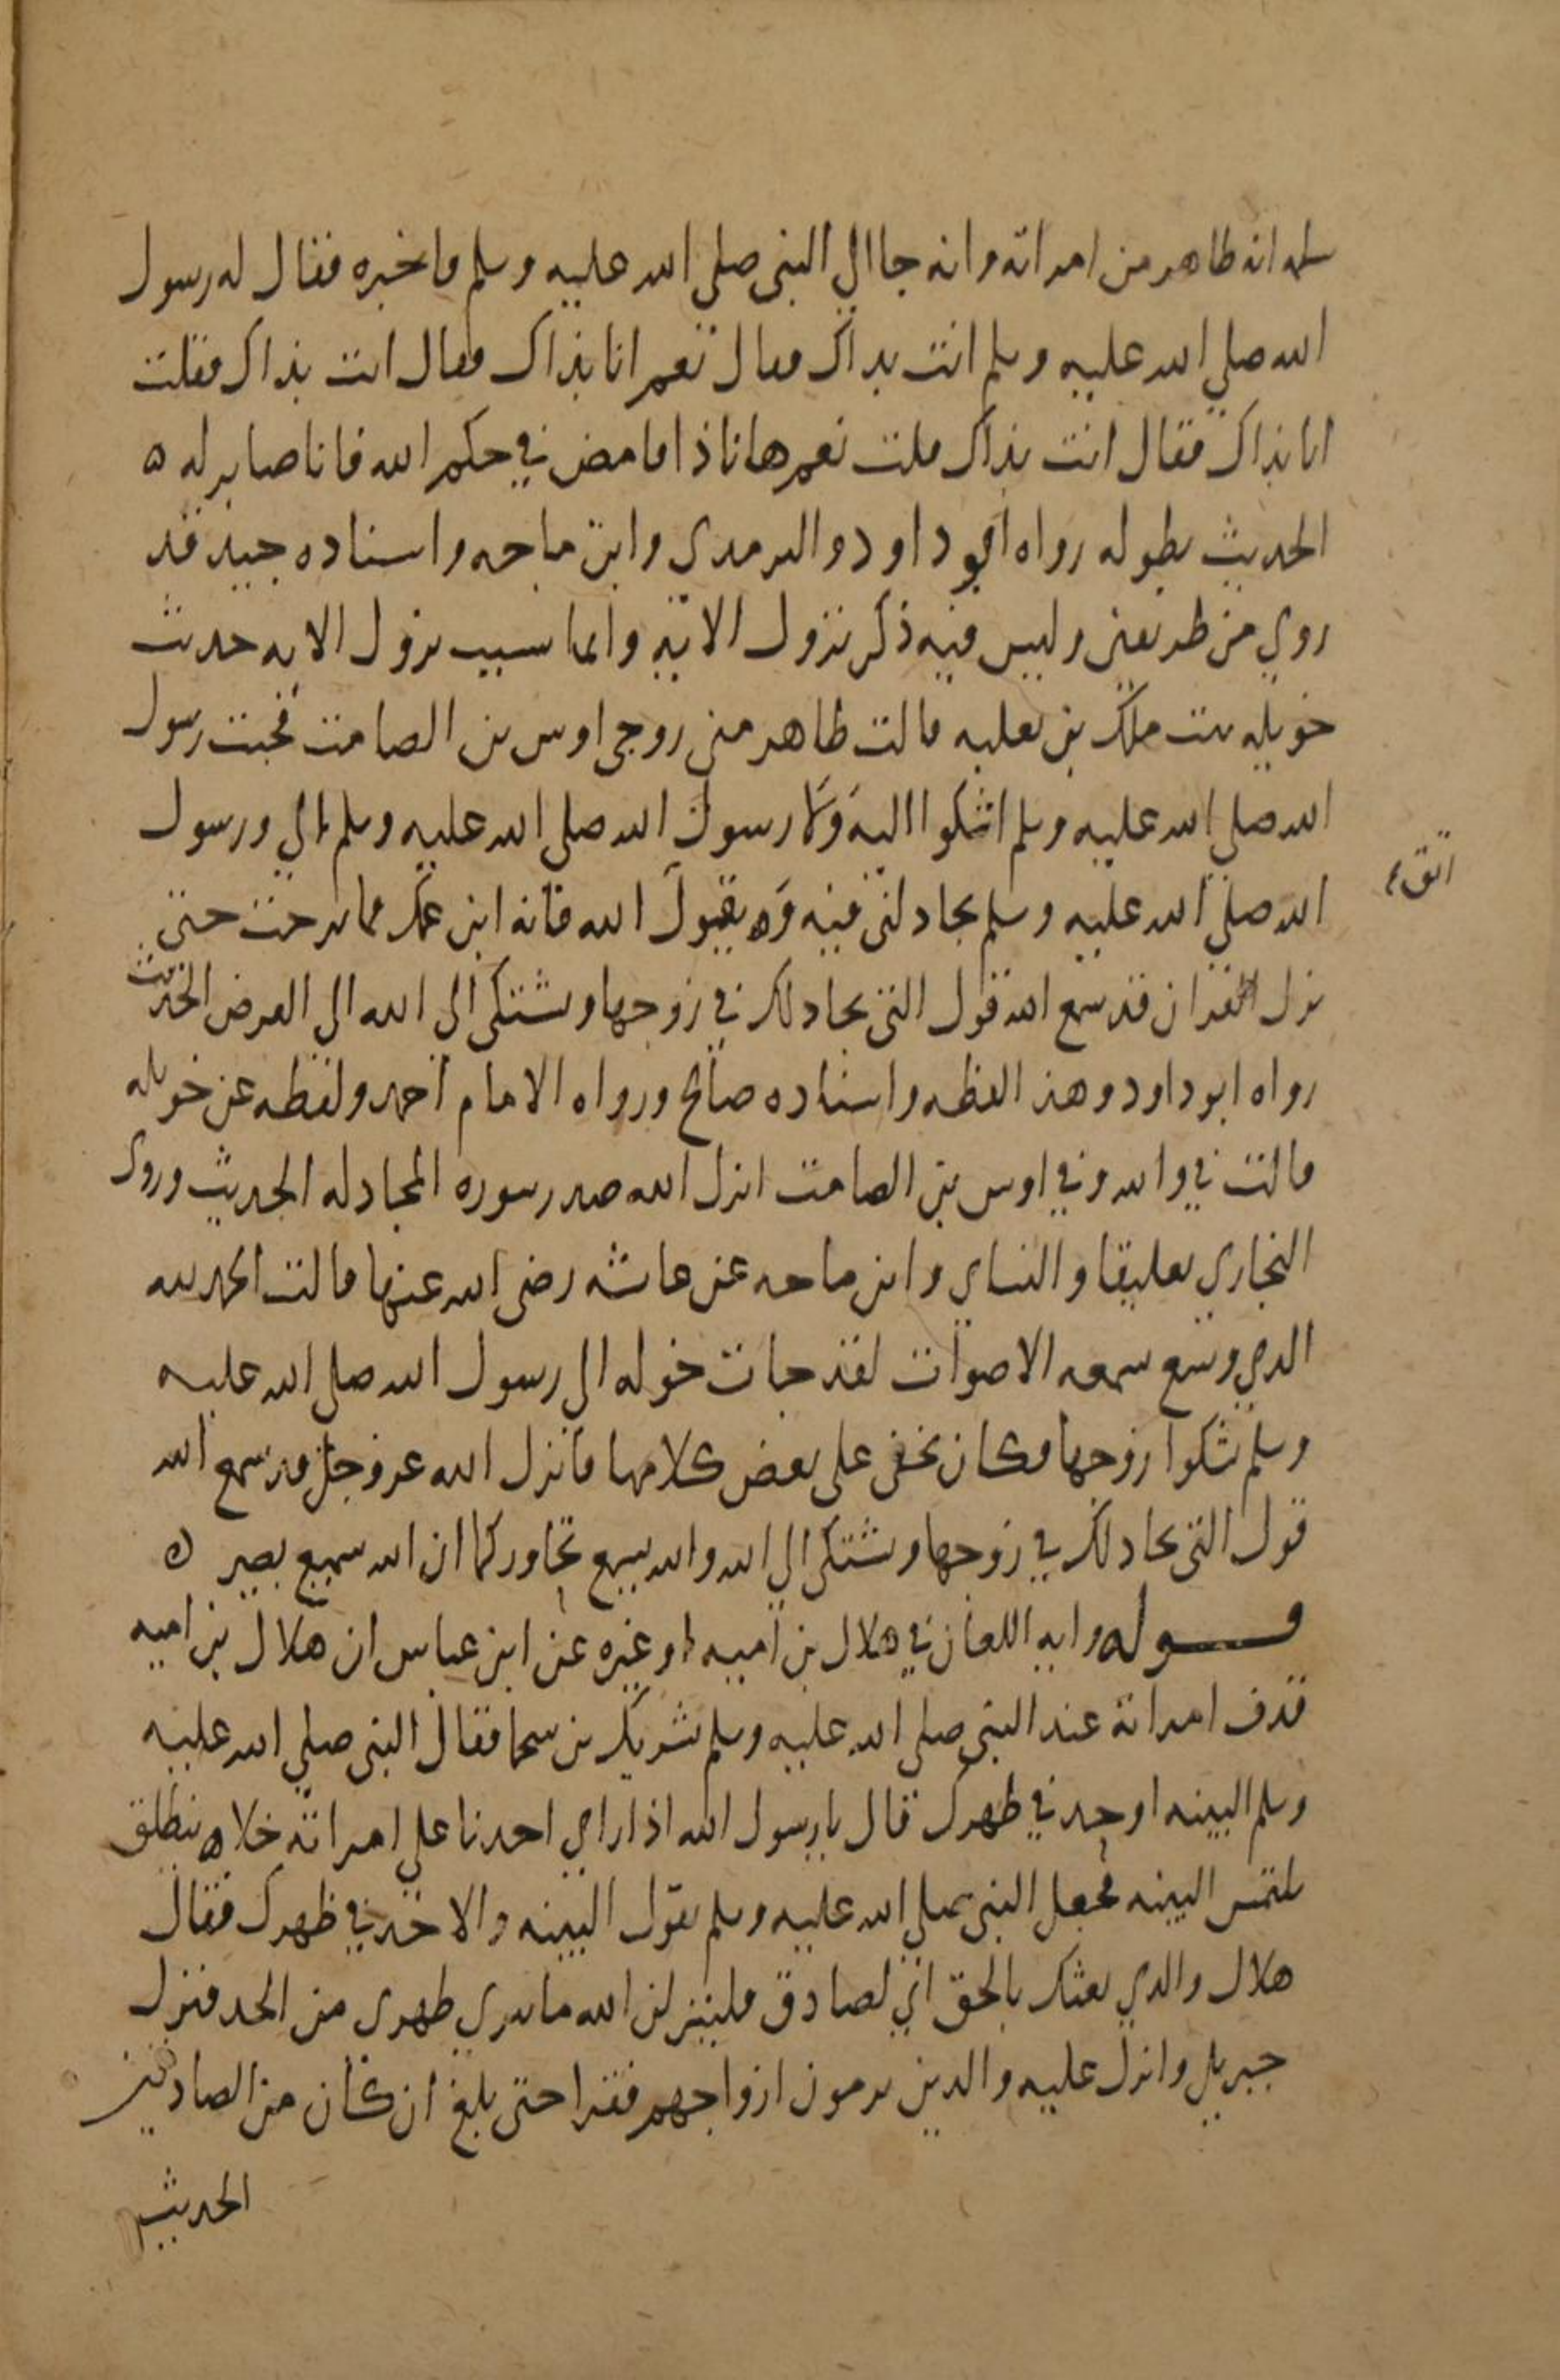 سلمه انه ظاهر من امراته وانه جا الى النبى صلى الله عليه وسلم فاخبره فقال له رسول
الله صلى الله عليه وسلم انت بذاك فقال نعم انا بذاك فقال انت بذاك فقلت
انا بذاك فقال انت بذاك قلت نعم ها انا ذا فامض في حكم الله فانا صابر له ه
الحديث بطوله رواه ابو داود والترمدى وابن ماجه واسناده جيد قد
روي من طريقين وليس فيه ذكر نزول الايه وانما سبب نزول الايه حديث
خويله بنت ملك بن ثعلبه قالت ظاهر مني زوجى اوس بن الصامت فجيت رسول
الله صلى الله عليه وسلم اشكوا اليه ورسول الله صلى الله عليه وسلم الي ورسول
اتق
الله صلى الله عليه وسلم يجادلنى فيه وه يقول الله فانه ابن عمك فما برحت حتى
نزل القران قد سمع الله قول التى تجادلك في زوجها وتشتكى الى الله الى الفرض الحديث
رواه ابو داود وهذ الفظه واسناده صالح ورواه الامام احمد ولفظه عن خويله
قالت في والله وفي اوس بن الصامت انزل الله صدر سوره المجادله الحديث وروى
البخاري تعليقا والنساي وابن ماجه عن عائشه رضى الله عنها قالت الحمد لله
الدي وسع سمعه الاصوات لقد جات خوله الى رسول الله صلى الله عليه
وسلم تشكوا زوجها فكان يخفى على بعض كلامها فانزل الله عز وجل قد سمع الله
قول التى تجادلك في زوجها وتشتكى الى الله والله يسمع تحاوركما ان الله سميع بصير ه
قوله وايه اللعان في هلال بن اميه او غيره عن ابن عباس ان هلال بن اميه
قدف امراته عند النبى صلى الله عليه وسلم بشريك بن سحما فقال النبى صلى الله عليه
وسلم البينه او حد في ظهرك قال يا رسول الله اذا راي احدنا على امراته خلاه ينطلق
يلتمس البينه فجعل النبى صلى الله عليه وسلم يقول البينه والا حد في ظهرك فقال
هلال والدي بعثك بالحق اني لصادق فلينزلن الله ما يبري ظهرى من الحد فنزل
جبريل وانزل عليه والدين يرمون ازواجهم فقرا حتى بلغ ان كان من الصادقين
الحديث